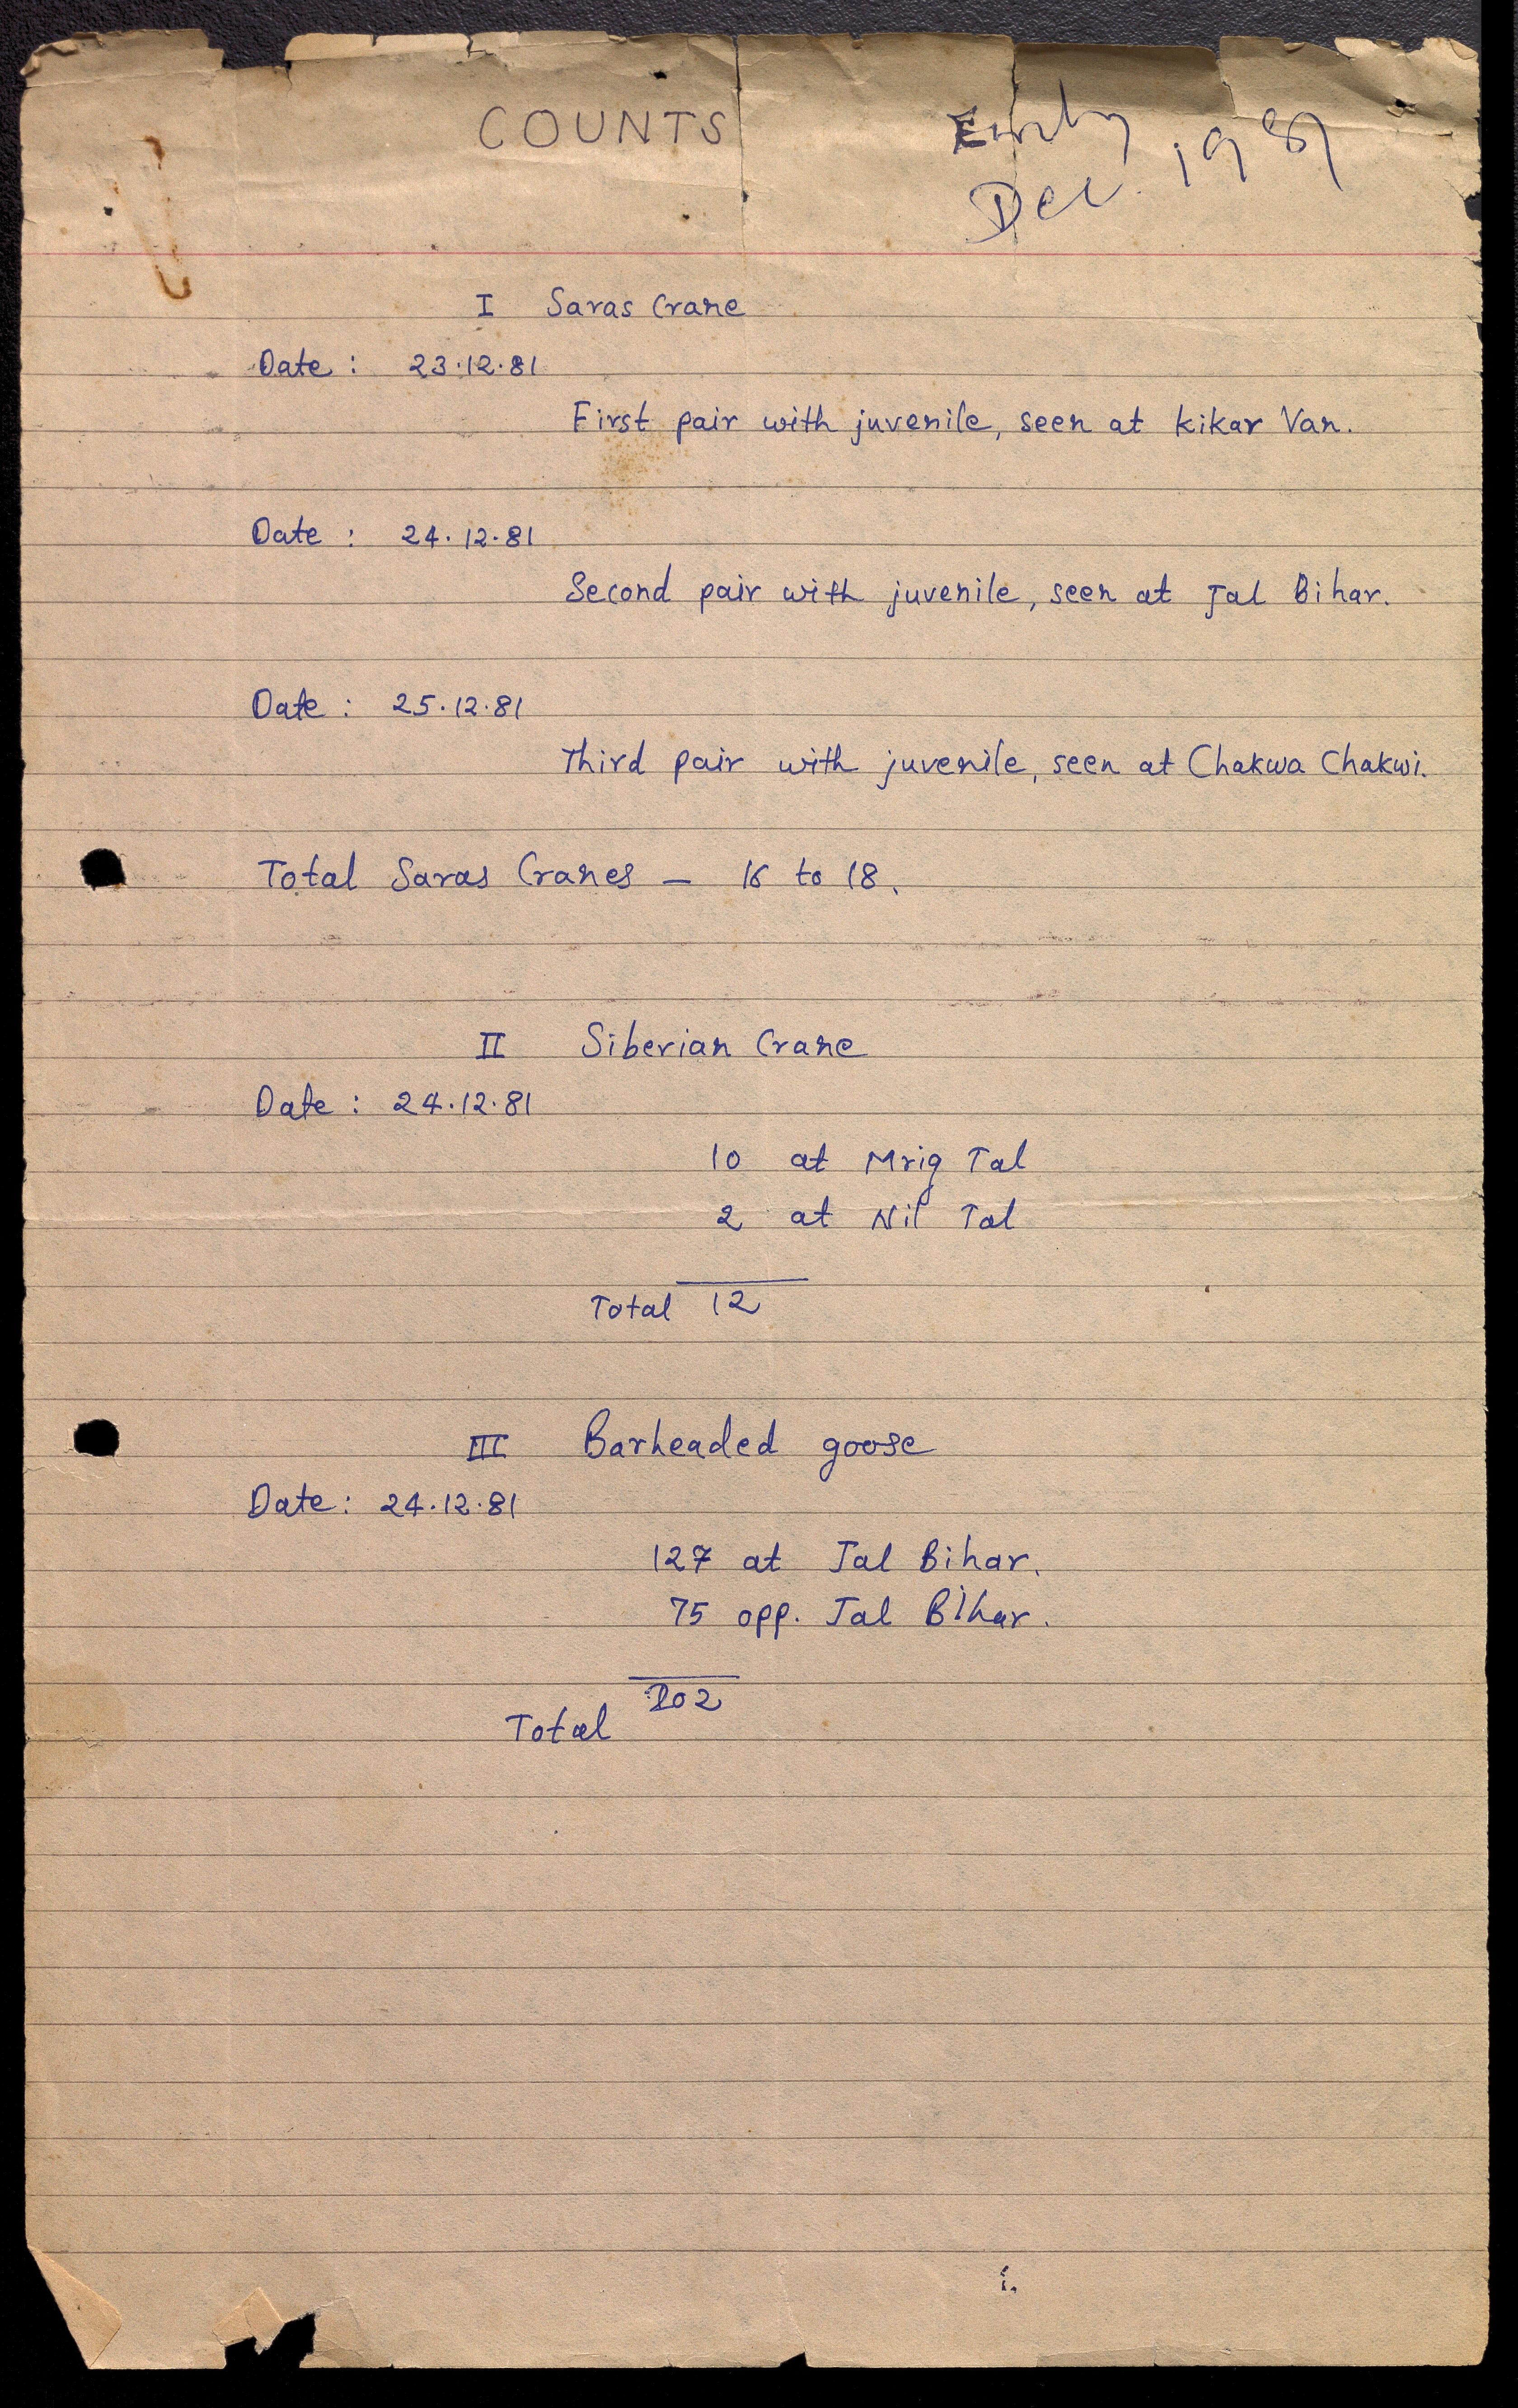 COUNTS
Dec. 1981
I Saras Crane
Date : 23.12.81
First pair with juvenile, seen at Kikar Van.
Date : 24.12.81
Second pair with juvenile, seen at Jal Bihar.
Date : 25.12.81
Third pair with juvenile, seen at Chakwa Chakwi.
Total Saras Cranes – 16 to 18.
II Siberian Crane
Date : 24.12.81
10 at Mrig Tal
2 at Nil Tal
Total 12
III Barheaded goose
Date : 24.12.81
127 at Jal Bihar.
75 opp. Jal Bihar.
Total 202